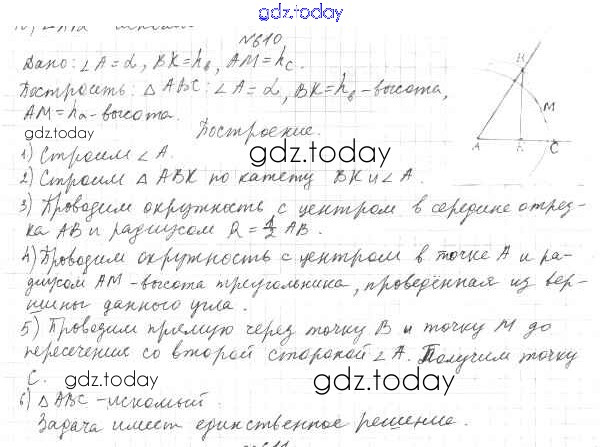 gdz.today
№610
Дано: ∠A = α, BK = hв, AM = hс.
Построить: △ABC: ∠A = α, BK = hв - высота,
AM = hа - высота.
gdz.today
Построение.
B
M
A
K
C
1) Строим ∠A.
gdz.today
gdz.today
2) Строим △ABK по катету BK и ∠A.
3) Проводим окружность с центром в середине отрез-
ка AB и радиусом R = 1/2 AB.
4) Проводим окружность с центром в точке A и ра-
диусом AM - высота треугольника, проведённая из вер-
шины данного угла.
5) Проводим прямую через точку B и точку M до
пересечение со второй стороной ∠A. Получим точку
C.
gdz.today
gdz.today
6) △ABC - искомый.
Задача имеет единственное решение.